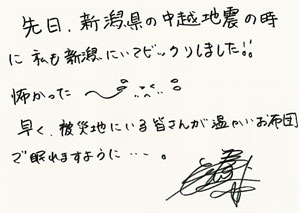 先日、新潟県の中越地震の時
に私も新潟にいてビックリしました!!
怖かった
早く、被災地にいる皆さんが温かいお布団
で眠れますように…。